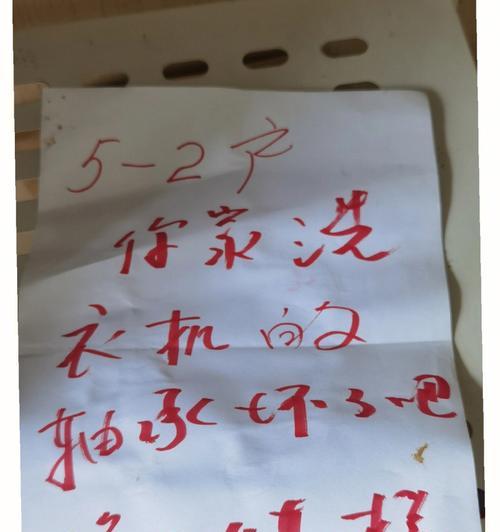 5-2户
你家洗
衣机的
轴承坏了吧